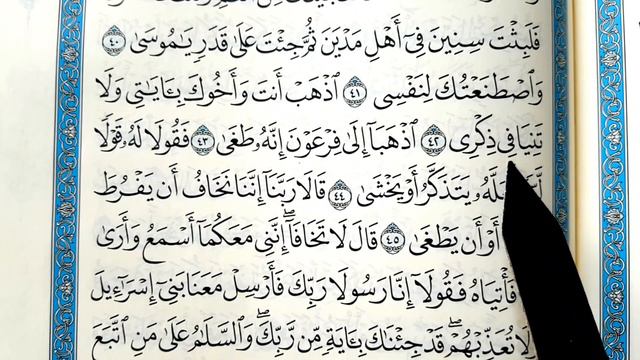 فَلَبِثْتَ سِنِينَ فِىٓ أَهْلِ مَدْيَنَ ثُمَّ جِئْتَ عَلَىٰ قَدَرٍ يَٰمُوسَىٰ ٤٠
وَٱصْطَنَعْتُكَ لِنَفْسِى ٤١ ٱذْهَبْ أَنتَ وَأَخُوكَ بِـَٔايَٰتِى وَلَا
تَنِيَا فِى ذِكْرِى ٤٢ ٱذْهَبَآ إِلَىٰ فِرْعَوْنَ إِنَّهُۥ طَغَىٰ ٤٣ فَقُولَا لَهُۥ قَوْلًا
يَتَذَكَّرُ أَوْ يَخْشَىٰ ٤٤ قَالَا رَبَّنَآ إِنَّنَا نَخَافُ أَن يَفْرُطَ
أَوْ أَن يَطْغَىٰ ٤٥ قَالَ لَا تَخَافَآ ۖ إِنَّنِى مَعَكُمَآ أَسْمَعُ وَأَرَىٰ
فَأْتِيَاهُ فَقُولَآ إِنَّا رَسُولَا رَبِّكَ فَأَرْسِلْ مَعَنَا بَنِىٓ إِسْرَٰٓءِيلَ
تُعَذِّبْهُمْ ۖ قَدْ جِئْنَٰكَ بِـَٔايَةٍ مِّن رَّبِّكَ ۖ وَٱلسَّلَٰمُ عَلَىٰ مَنِ ٱتَّبَعَ